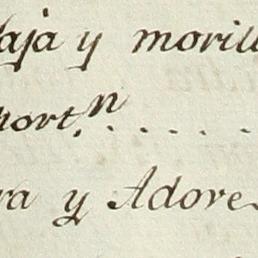 laja y morill
mort.n . . . . . .
ra y Adore